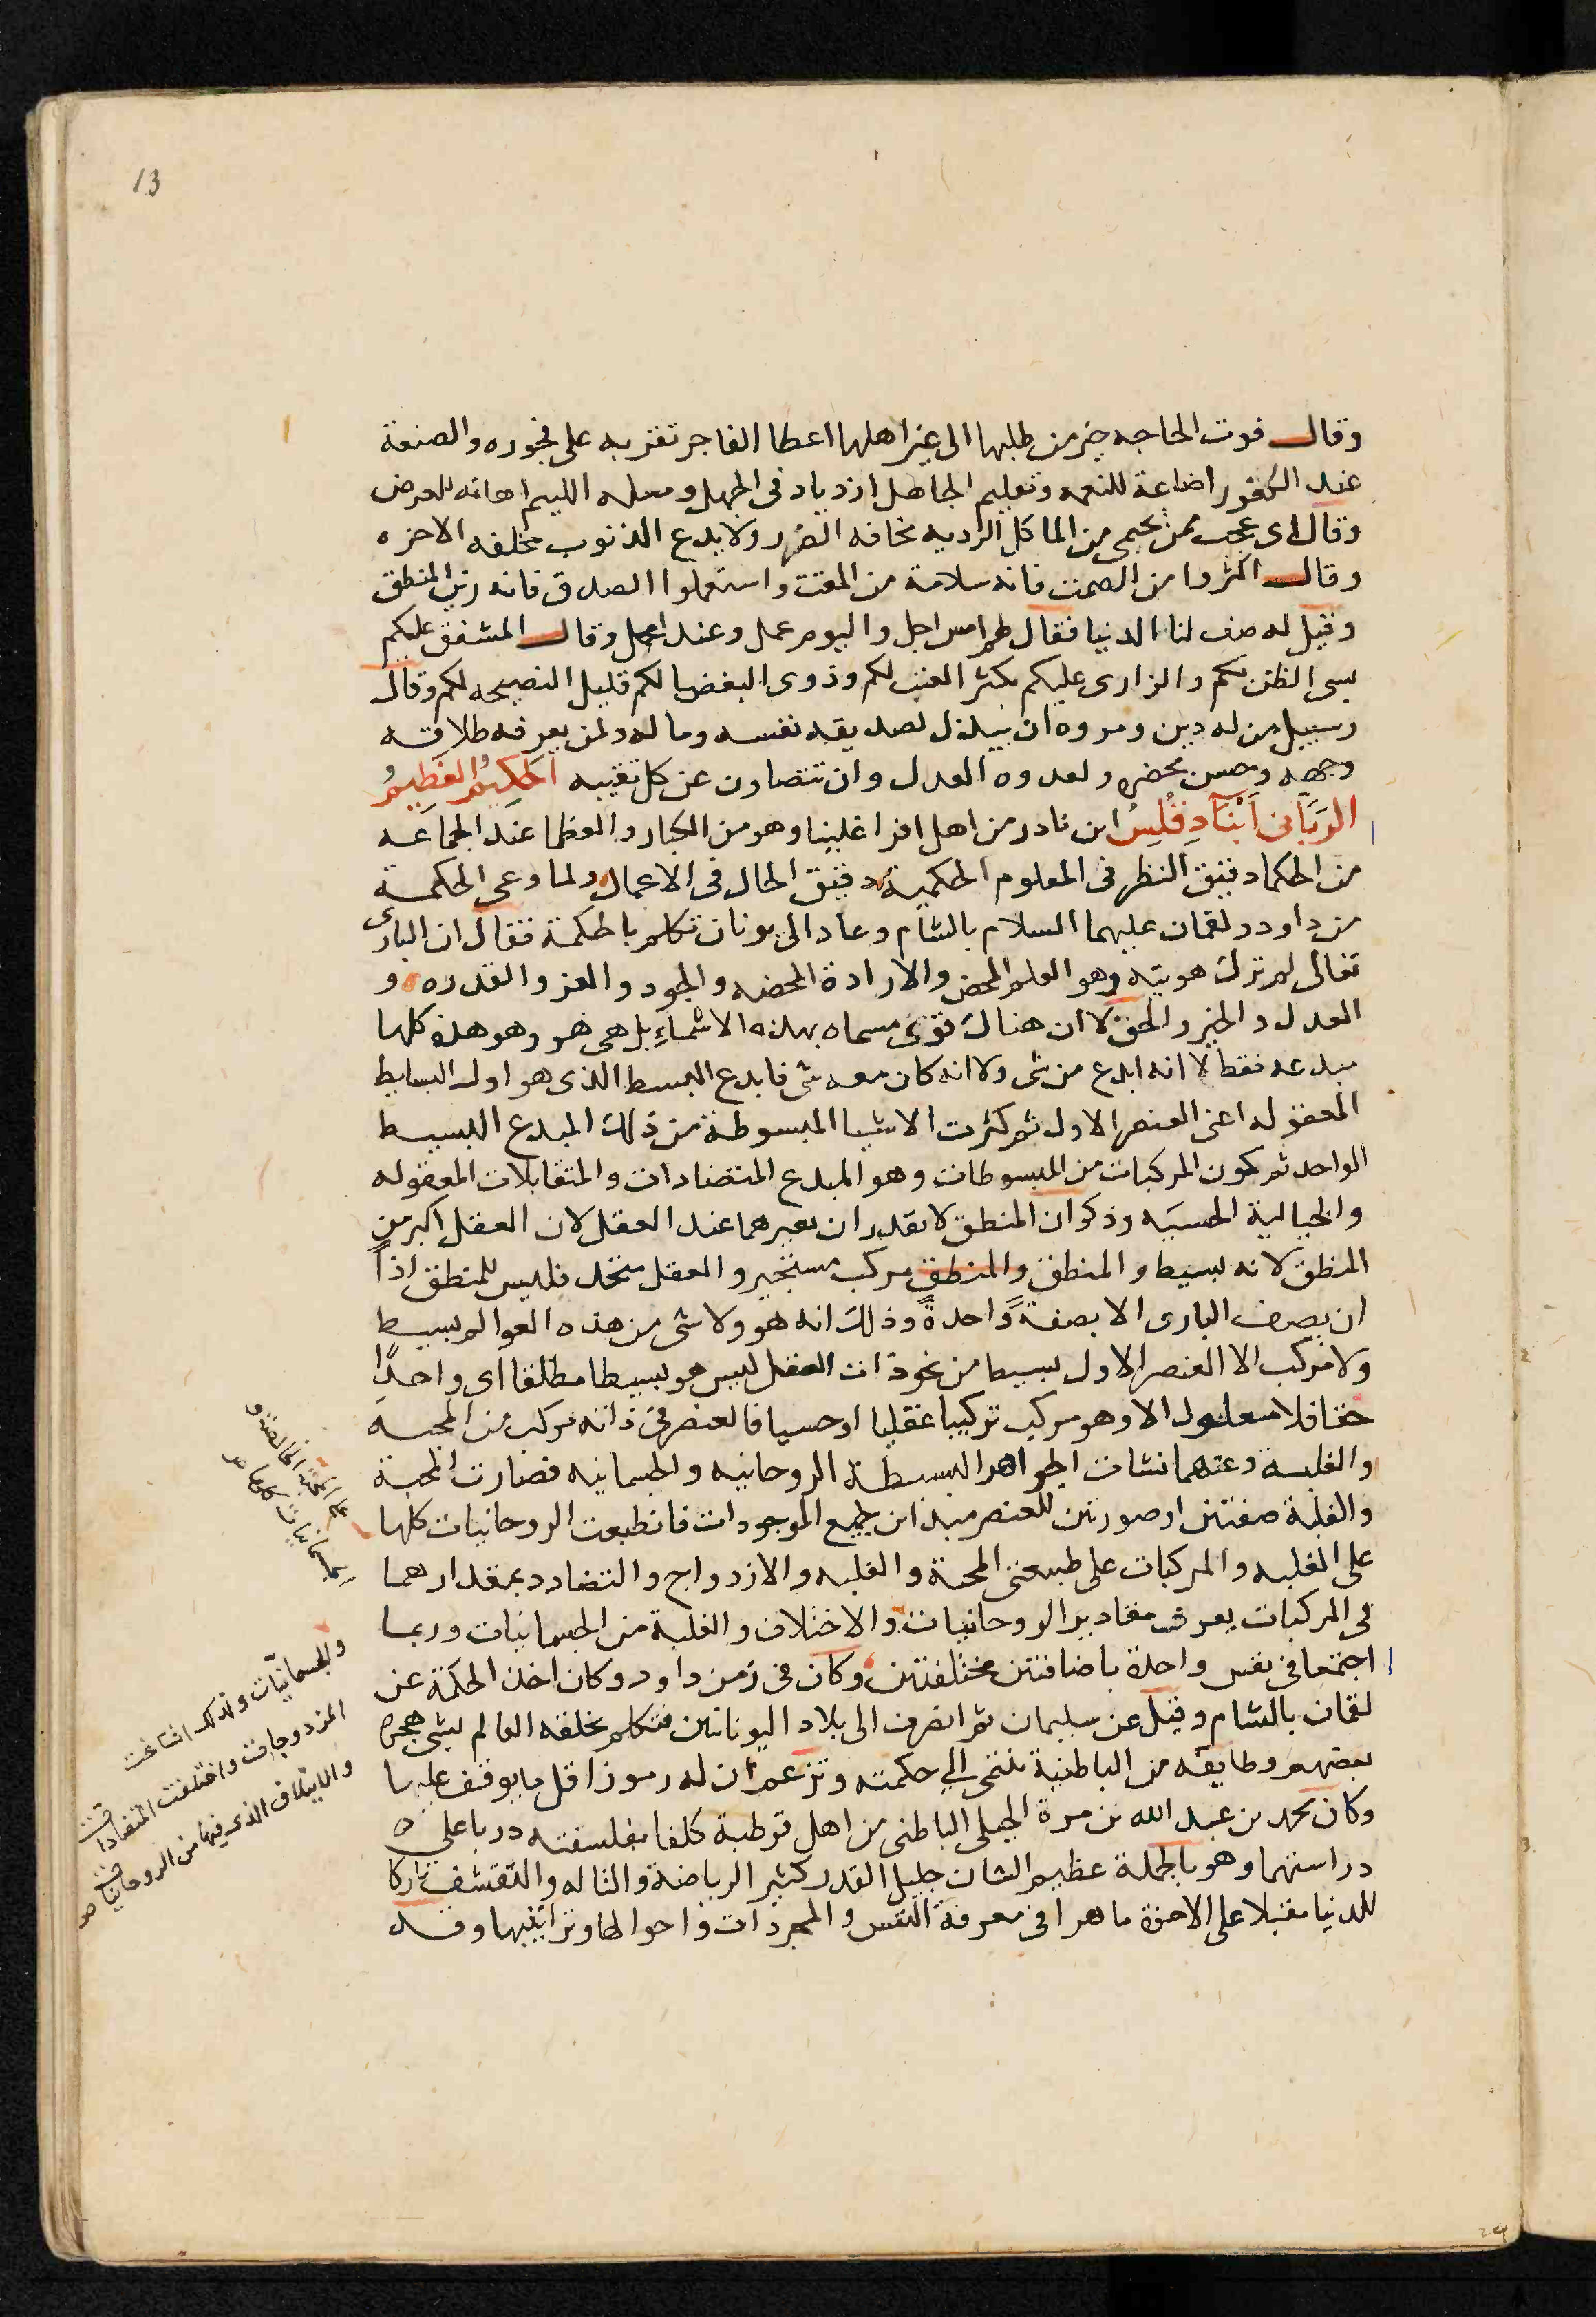 13
وقال فوت الحاجه خير من طلبها الى غير اهلها اعطا الفاجر تقويه على فجوره والصنعة
عند الكفور اضاعة للنعمه وتعليم الجاهل ازدياد فى الجهل ومسله اللييم اهانه للعرض
وقال اى عجب ممن يحمى من الماكل الرديه مخافه الضرر ولا يدع الذنوب مخافه الاخره
وقال اكثروا من الصمت فانه سلامة من المقت واستعملوا الصدق فانه زين المنطق
وقيل له صف لنا الدنيا فقال امس اجل واليوم عمل وغدا امل وقال المشفق عليكم
يسى الظن بكم والزارى عليكم يكثر العتب لكم وذوى البغضا لكم قليل النصيحه لكم وقال
وسبيل من له دين ومروه ان يبذل لصديقه نفسه وماله ولمن يعرفه طلاقه
وجهه وحسن محضره ولعدوه العدل وان تتصاون عن كل تعيبه الحَكِيمُ العَظِيمُ
الرَبَّانى اَنْبَادِقُلِسُ ابن نادر من اهل اقراغلينا وهو من الكبار والعظما عند الجماعه
من الحكما دقيق النظر فى العلوم الحكمية دقيق الحال فى الاعمال ولما وعى الحكمة
من داود ولقمان عليهما السلام بالشام وعاد الى يونان تكلم بالحكمة فقال ان البارى
تعالى لم تزل هويته وهو العلم المحض والارادة المحضه والجود والعز والقدره و
العدل والخير والحق لا ان هناك قوى مسماه بهذه الاسماءِ بل هى هو وهو هذه كلها
مبدعه فقط لا انه ابدع من شى ولا انه كان معه شى فابدع البسيط الذى هو اول البسايط
المعقوله اعنى العنصر الاول ثم كثرت الاشيا المبسوطة من ذلك المبدع البسيط
الواحد ثم كون المركبات من المبسوطات وهو المبدع المتضادات والمتقابلات المعقوله
والخيالية الحسيَه وذكر ان المنطق لا يقدر ان يعبر هما عند العقل لان العقل اكبر من
المنطق لانه بسيط والمنطق والمنطق مركب مستجير والعقل متحد فليس للمنطق اذًا
ان يصف البارى الا بصفةً واحدةً وذلك انه هو ولا شى من هذه العوالم بسيط
ولا مركب الا العنصر الاول بسيط من نحو ذات العقل ليس هو بسيطا مطلقا اى واحدًا
حقا فلا معلول الا وهو مركب تركيبا عقليا او حسيا فالعنصر فى ذاته مركب من المحبه
والغلبه وعنهما نشات الجواهر البسيطة الروحانيه والجسمانيه فصارت المحبة
والغلبة صفتين او صورتين للعنصر مبداين لجميع الموجودات فانطبعت الروحانيات كلها
على الغلبه والمركبات على طبيعتى المحبة والغلبه والازدواج والتضاد وبمقدارهما
فى المركبات يعرف مقادير الروحانيات والاختلاف والغلبة من الجسمانيات وربما
اجتمعا فى نفس واحدة باضافتين مختلفتين وكان فى زمن داود وكان اخذ الحكمة عن
لقمان بالشام وقيل عن سليمان ثم انصرف الى بلاد اليونانين فتكلم بخلقه العالم بشى هجره
بعضهم وطايفه من الباطنية تنتمى الى حكمته وتزعم ان له رموزا قل ما يوقف عليها
وكان محمد بن عبد الله بن مرة الجبلى الباطنى من اهل قرطبة كلفا بفلسفته دربا على
دراستهما وهو بالجملة عظيم الشان جليل القدر كثير الرياضة والتاله والتقشف تاركا
للدنيا مقبلا على الاخرة ماهرا فى معرفة النفس والمجردات واحوالها وتراتيبها وقد
على المحبة الخالصة و
الجسمانيات كلها صح
والجسمانيّات ولذلك ايتلفت
المزدوجات واختلفت المتضادات
والايتلاف الذى فيها من الروحانيات صح